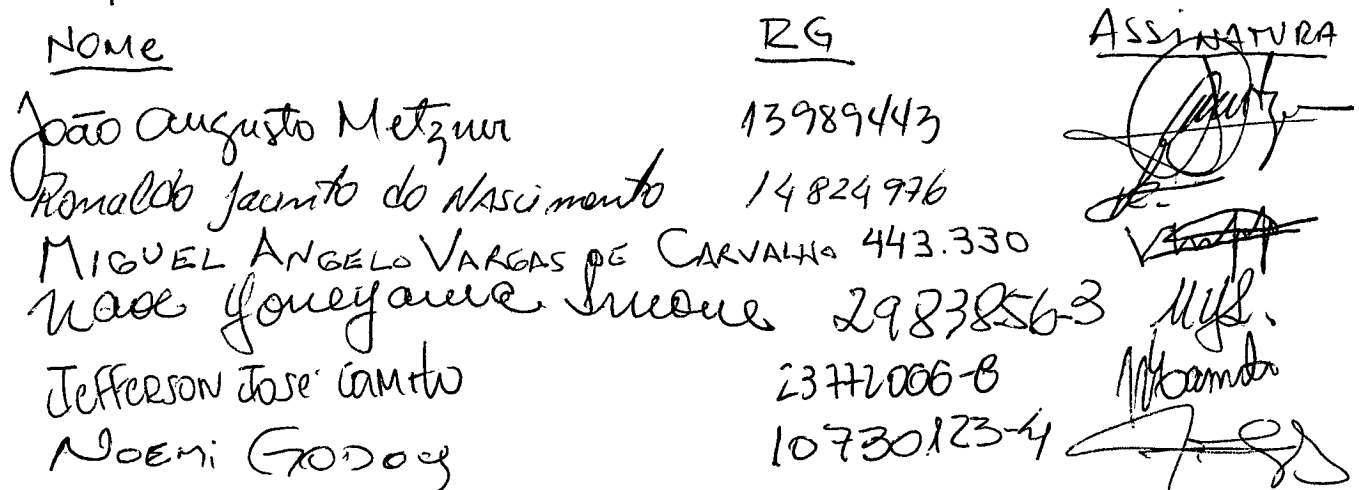 Nome RG ASSINATURA
João Augusto Metzner 13989443
Ronaldo Jacinto do Nascimento 14824976
MIGUEL ANGELO VARGAS DE CARVALHO 443.330
Yoneyama 2983856-3 MYS.
JEFFERSON JOSÉ CAMILO 23772006-8
NOEMI GODOY 10730123-4